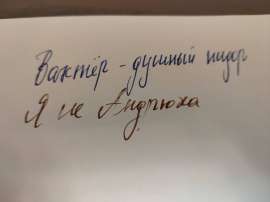 Вахтёр - душный пидор
Я не Андрюха